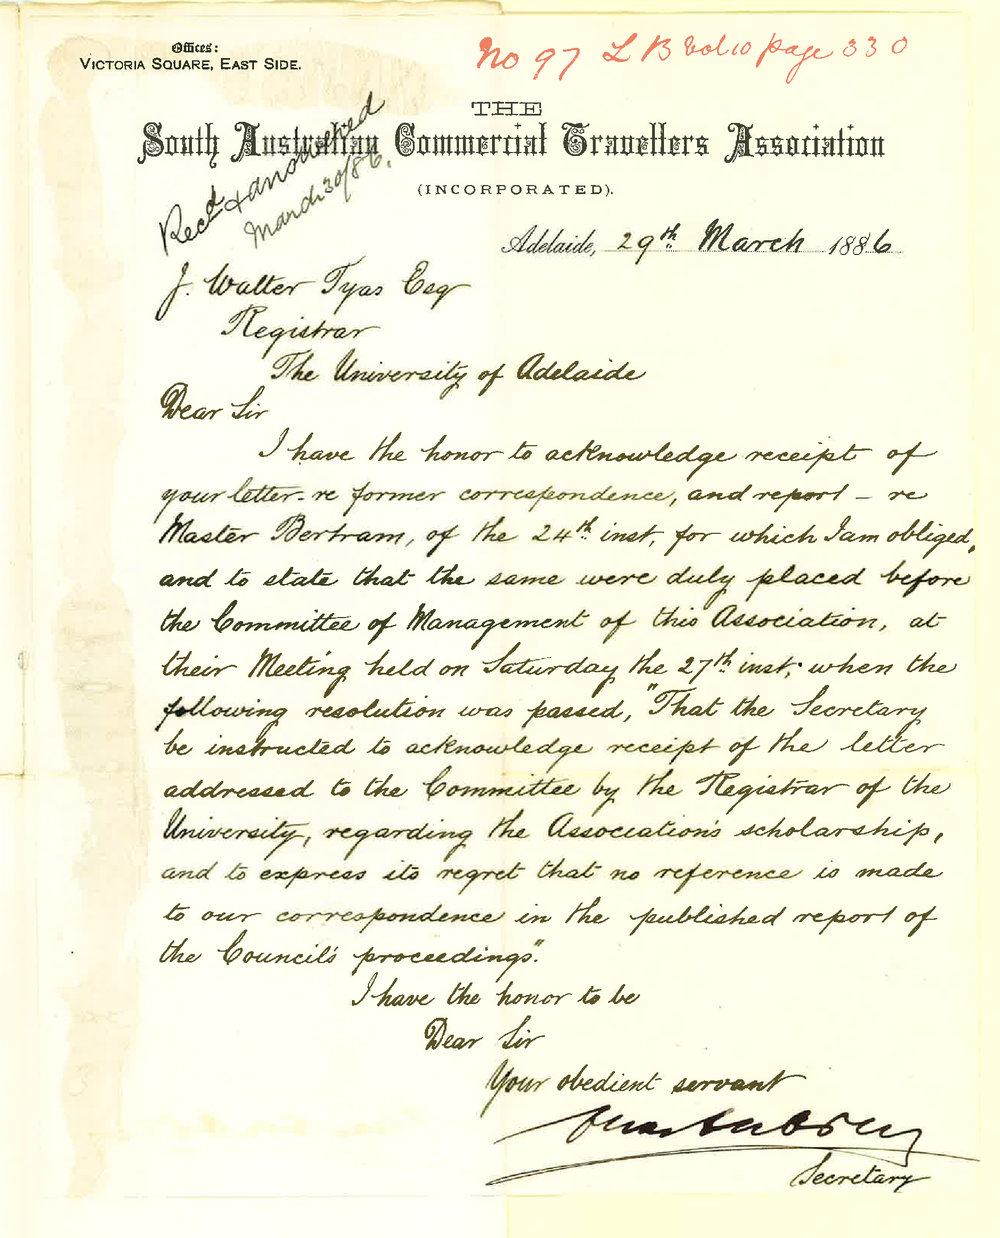 Offices:
VICTORIA SQUARE, EAST SIDE.
No 97 L B Vol 10 page 330
THE
South Australian Commercial Travellers Association
(INCORPORATED).
Recd & answered
March 30/86.
Adelaide, 29th March 1886
J. Walter Tyas Esq
Registrar
The University of Adelaide
Dear Sir
I have the honor to acknowledge receipt of
your letter - re former correspondence, and report - re
Master Bertram, of the 24th inst, for which I am obliged,
and to state that the same were duly placed before
the Committee of Management of this Association, at
their Meeting held on Saturday the 27th inst; when the
following resolution was passed, "That the Secretary
be instructed to acknowledge receipt of the letter
addressed to the Committee by the Registrar of the
University, regarding the Association's scholarship,
and to express its regret that no reference is made
to our correspondence in the published report of
the Council's proceedings".
I have the honor to be
Dear Sir
Your obedient servant
Secretary